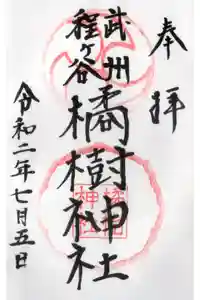 奉拝
武州
程ヶ谷
橘樹神社
令和二年七月五日